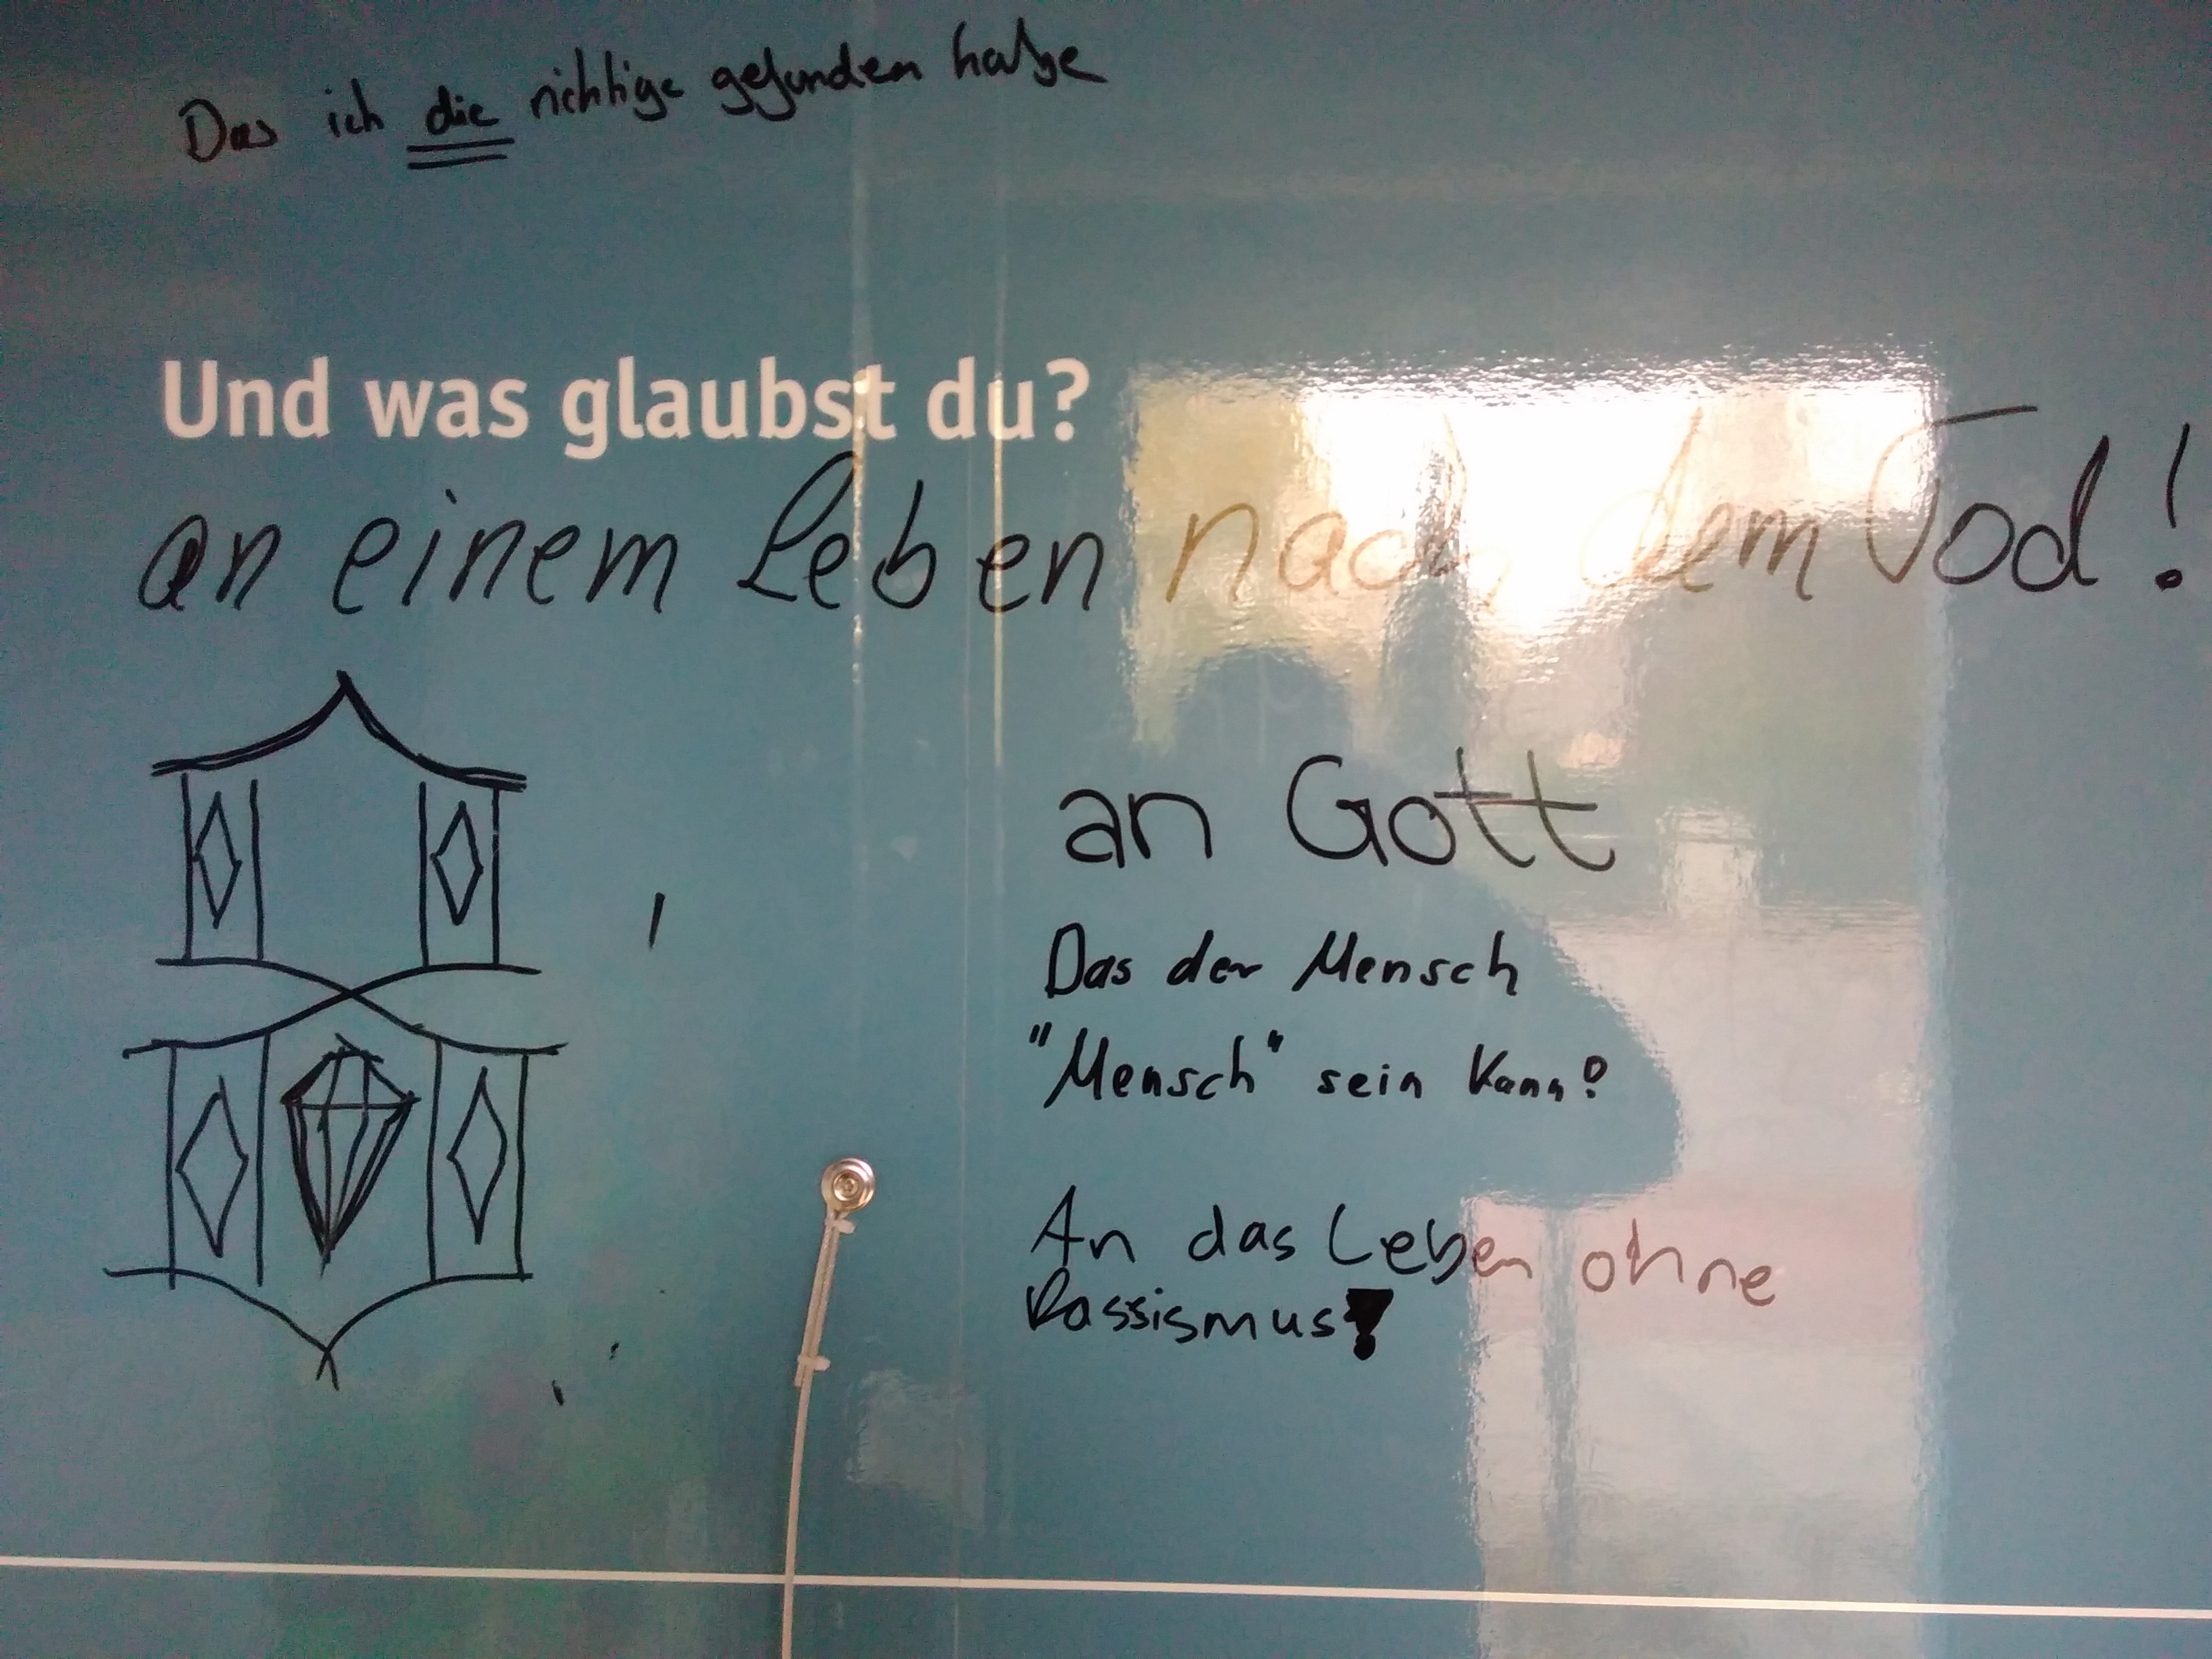 Das ich die richtige gefunden habe
Und was glaubst du?
an einem Leben nach dem Tod!
an Gott
Das der Mensch
"Mensch" sein kann?
An das Leben ohne
Rassismus!